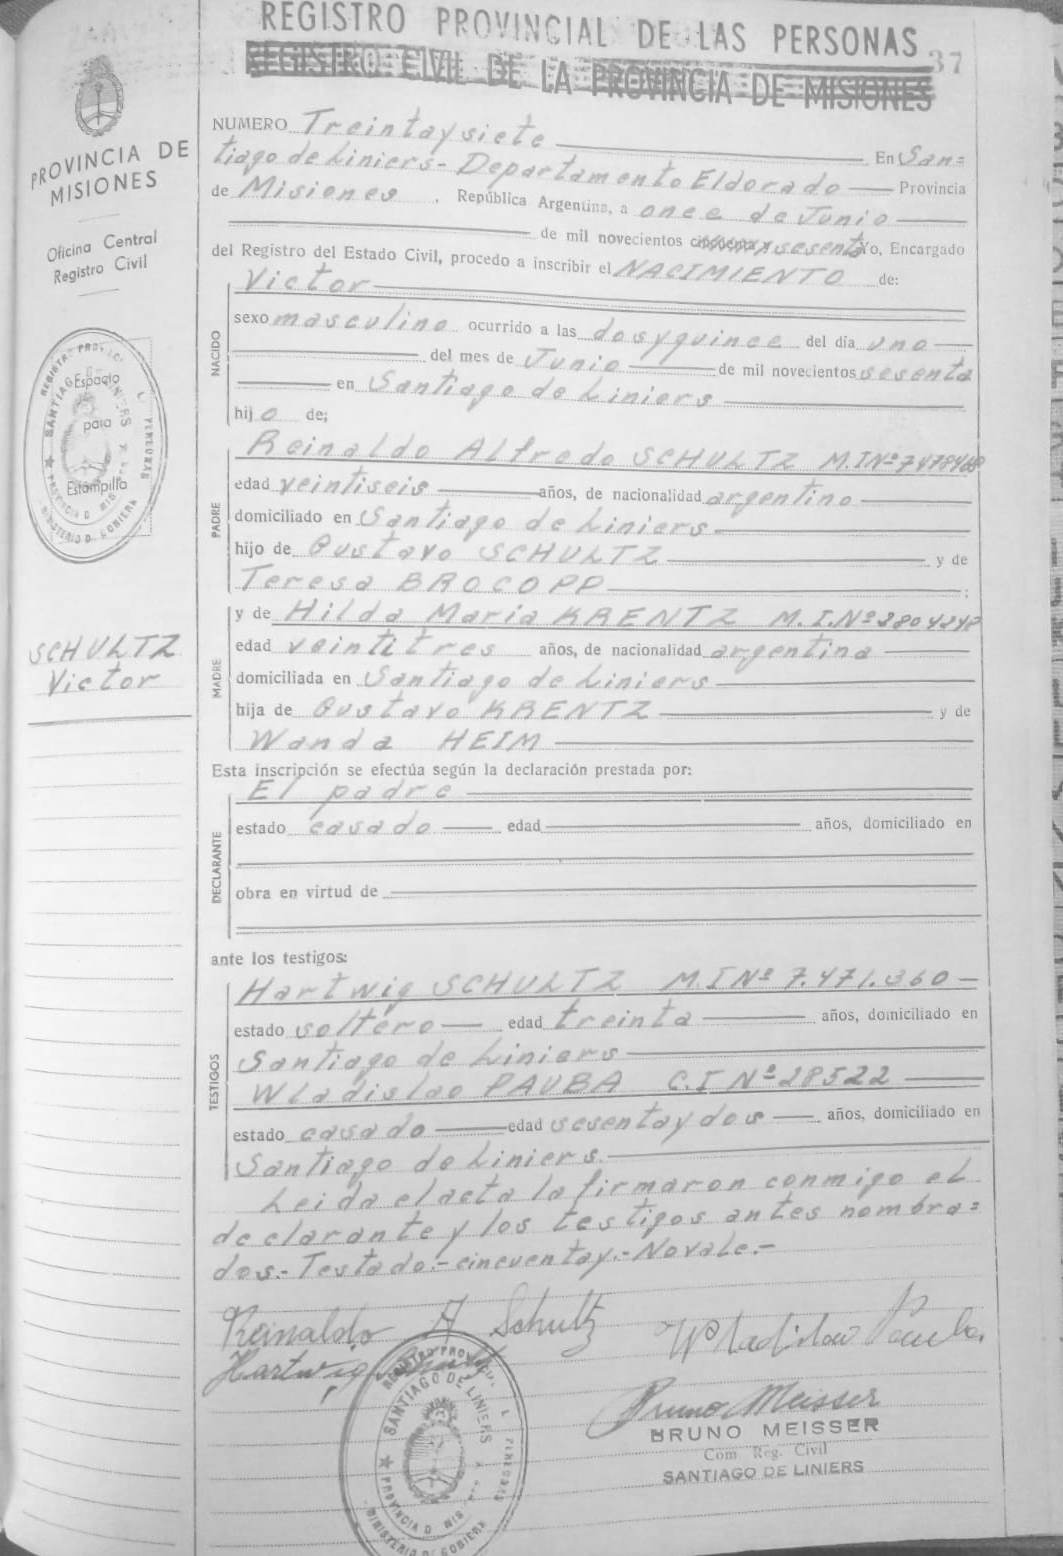 REGISTRO PROVINCIAL DE LAS PERSONAS
REGISTRO CIVIL DE LA PROVINCIA DE MISIONES
37
PROVINCIA DE
MISIONES
Oficina Central
Registro Civil
Espacio
para
Estampilla
SCHULTZ
Victor
NUMERO Treinta y siete En San=
tiago de Liniers - Departamento Eldorado Provincia
de Misiones, República Argentina, a once de Junio
de mil novecientos sesenta Yo, Encargado
del Registro del Estado Civil, procedo a inscribir el NACIMIENTO de:
NACIDO
Victor
sexo masculino ocurrido a las dos y quince del día uno
del mes de Junio de mil novecientos sesenta
en Santiago de Liniers
hijo de;
PADRE
Reinaldo Alfredo SCHULTZ M.I Nº 7478468
edad veintiseis años, de nacionalidad argentino
domiciliado en Santiago de Liniers
hijo de Gustavo SCHULTZ y de
Teresa BROCOPP;
MADRE
y de Hilda Maria KRENTZ M.I.Nº
edad veintitres años, de nacionalidad argentina
domiciliada en Santiago de Liniers
hija de Gustavo KRENTZ y de
Wanda HEIM
Esta inscripción se efectúa según la declaración prestada por:
DECLARANTE
El padre
estado casado edad años, domiciliado en
obra en virtud de
ante los testigos:
TESTIGOS
Hartwig SCHULTZ M.I Nº 7.471.360
estado soltero edad treinta años, domiciliado en
Santiago de Liniers
Wladislao PAUBA C.I Nº 28522
estado casado edad sesenta y dos años, domiciliado en
Santiago de Liniers.
Leida el acta la firmaron conmigo el
declarante y los testigos antes nombra=
dos.- Testado.- cincuenta y.- No vale.-
Reinaldo A Schultz
Hartwig Schultz
Bruno Meisser
BRUNO MEISSER
Com Reg. Civil
SANTIAGO DE LINIERS
SANTIAGO DE LINIERS